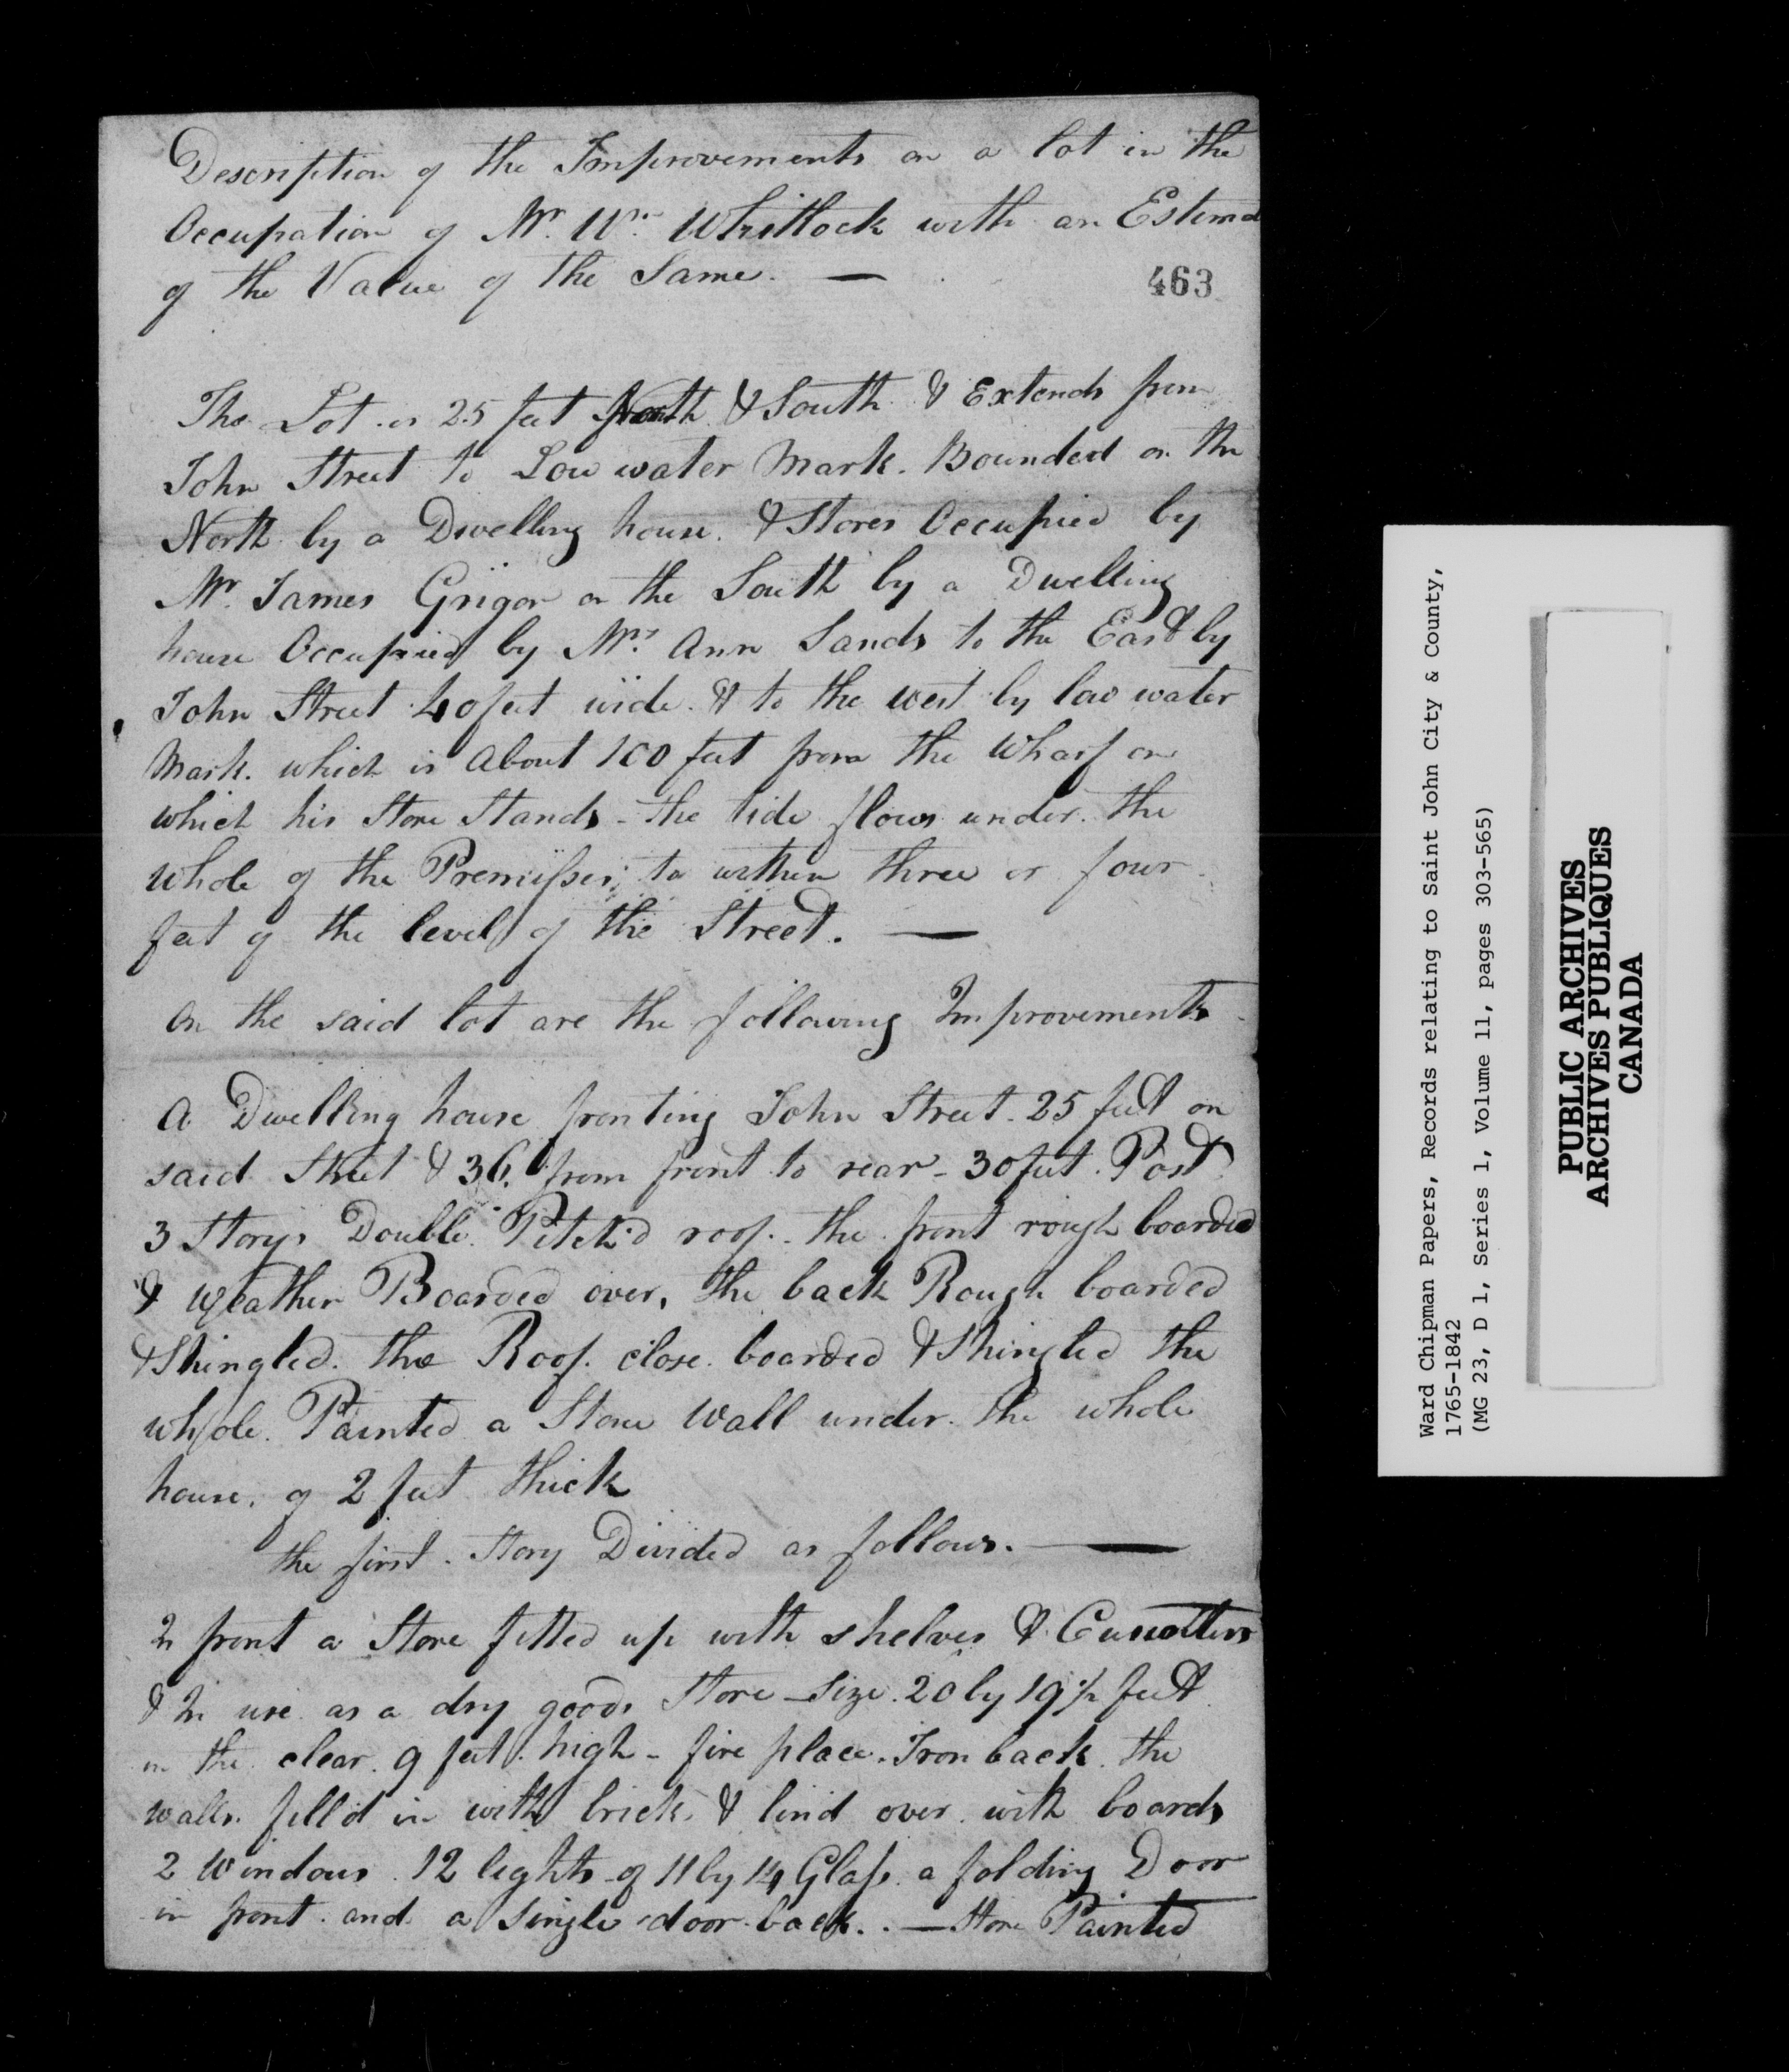 Description of the Improvements on a lot in the
Occupation of Mr. Wm. Whitlock with an Estima
of the Value of the Same. —
463
The Lot is 25 feet North & South & Extends from
John Street to Low water Mark. Bounded on the
North by a Dwelling house. & Stores Occupied by
Mr. James Grigor on the South by a Dwelling
house Occupied by Mrs. Ann Sands to the East by
John Street 40 feet wide. & to the west by low water
Mark. which is About 100 feet from the Wharf on
which his Store Stands - the tide flows under. the
whole of the Premisses; to within three or four
feet of the level of the Street. —
On the said lot are the following Improvements
A Dwelling house fronting John Street. 25 feet on
said Street & 36. from front to rear - 30 feet. Post
3 Storys Double. Pitch'd roof. - the front rough boarded
& Weather Boarded over, the back Rough boarded
& Shingled. the Roof. close. boarded & Shingled the
whole. Painted a Stone Wall under. the whole
house. of 2 feet thick
the first. Story Divided as follows. —
In front a Store fitted up with shelves & Counters
& In use as a dry goods Store - size. 20 by 19 1/2 feet
in the clear. 9 feet. high - fire place. Iron back. the
walls. fill'd in with brick. & lin'd over with boards
2 Windows. 12 lights - of 11 by 14 Glass. a folding Door
in front. and a single door back. . — Store Painted
Ward Chipman Papers, Records relating to Saint John City & County,
1765-1842
(MG 23, D 1, Series 1, Volume 11, pages 303-565)
PUBLIC ARCHIVES
ARCHIVES PUBLIQUES
CANADA